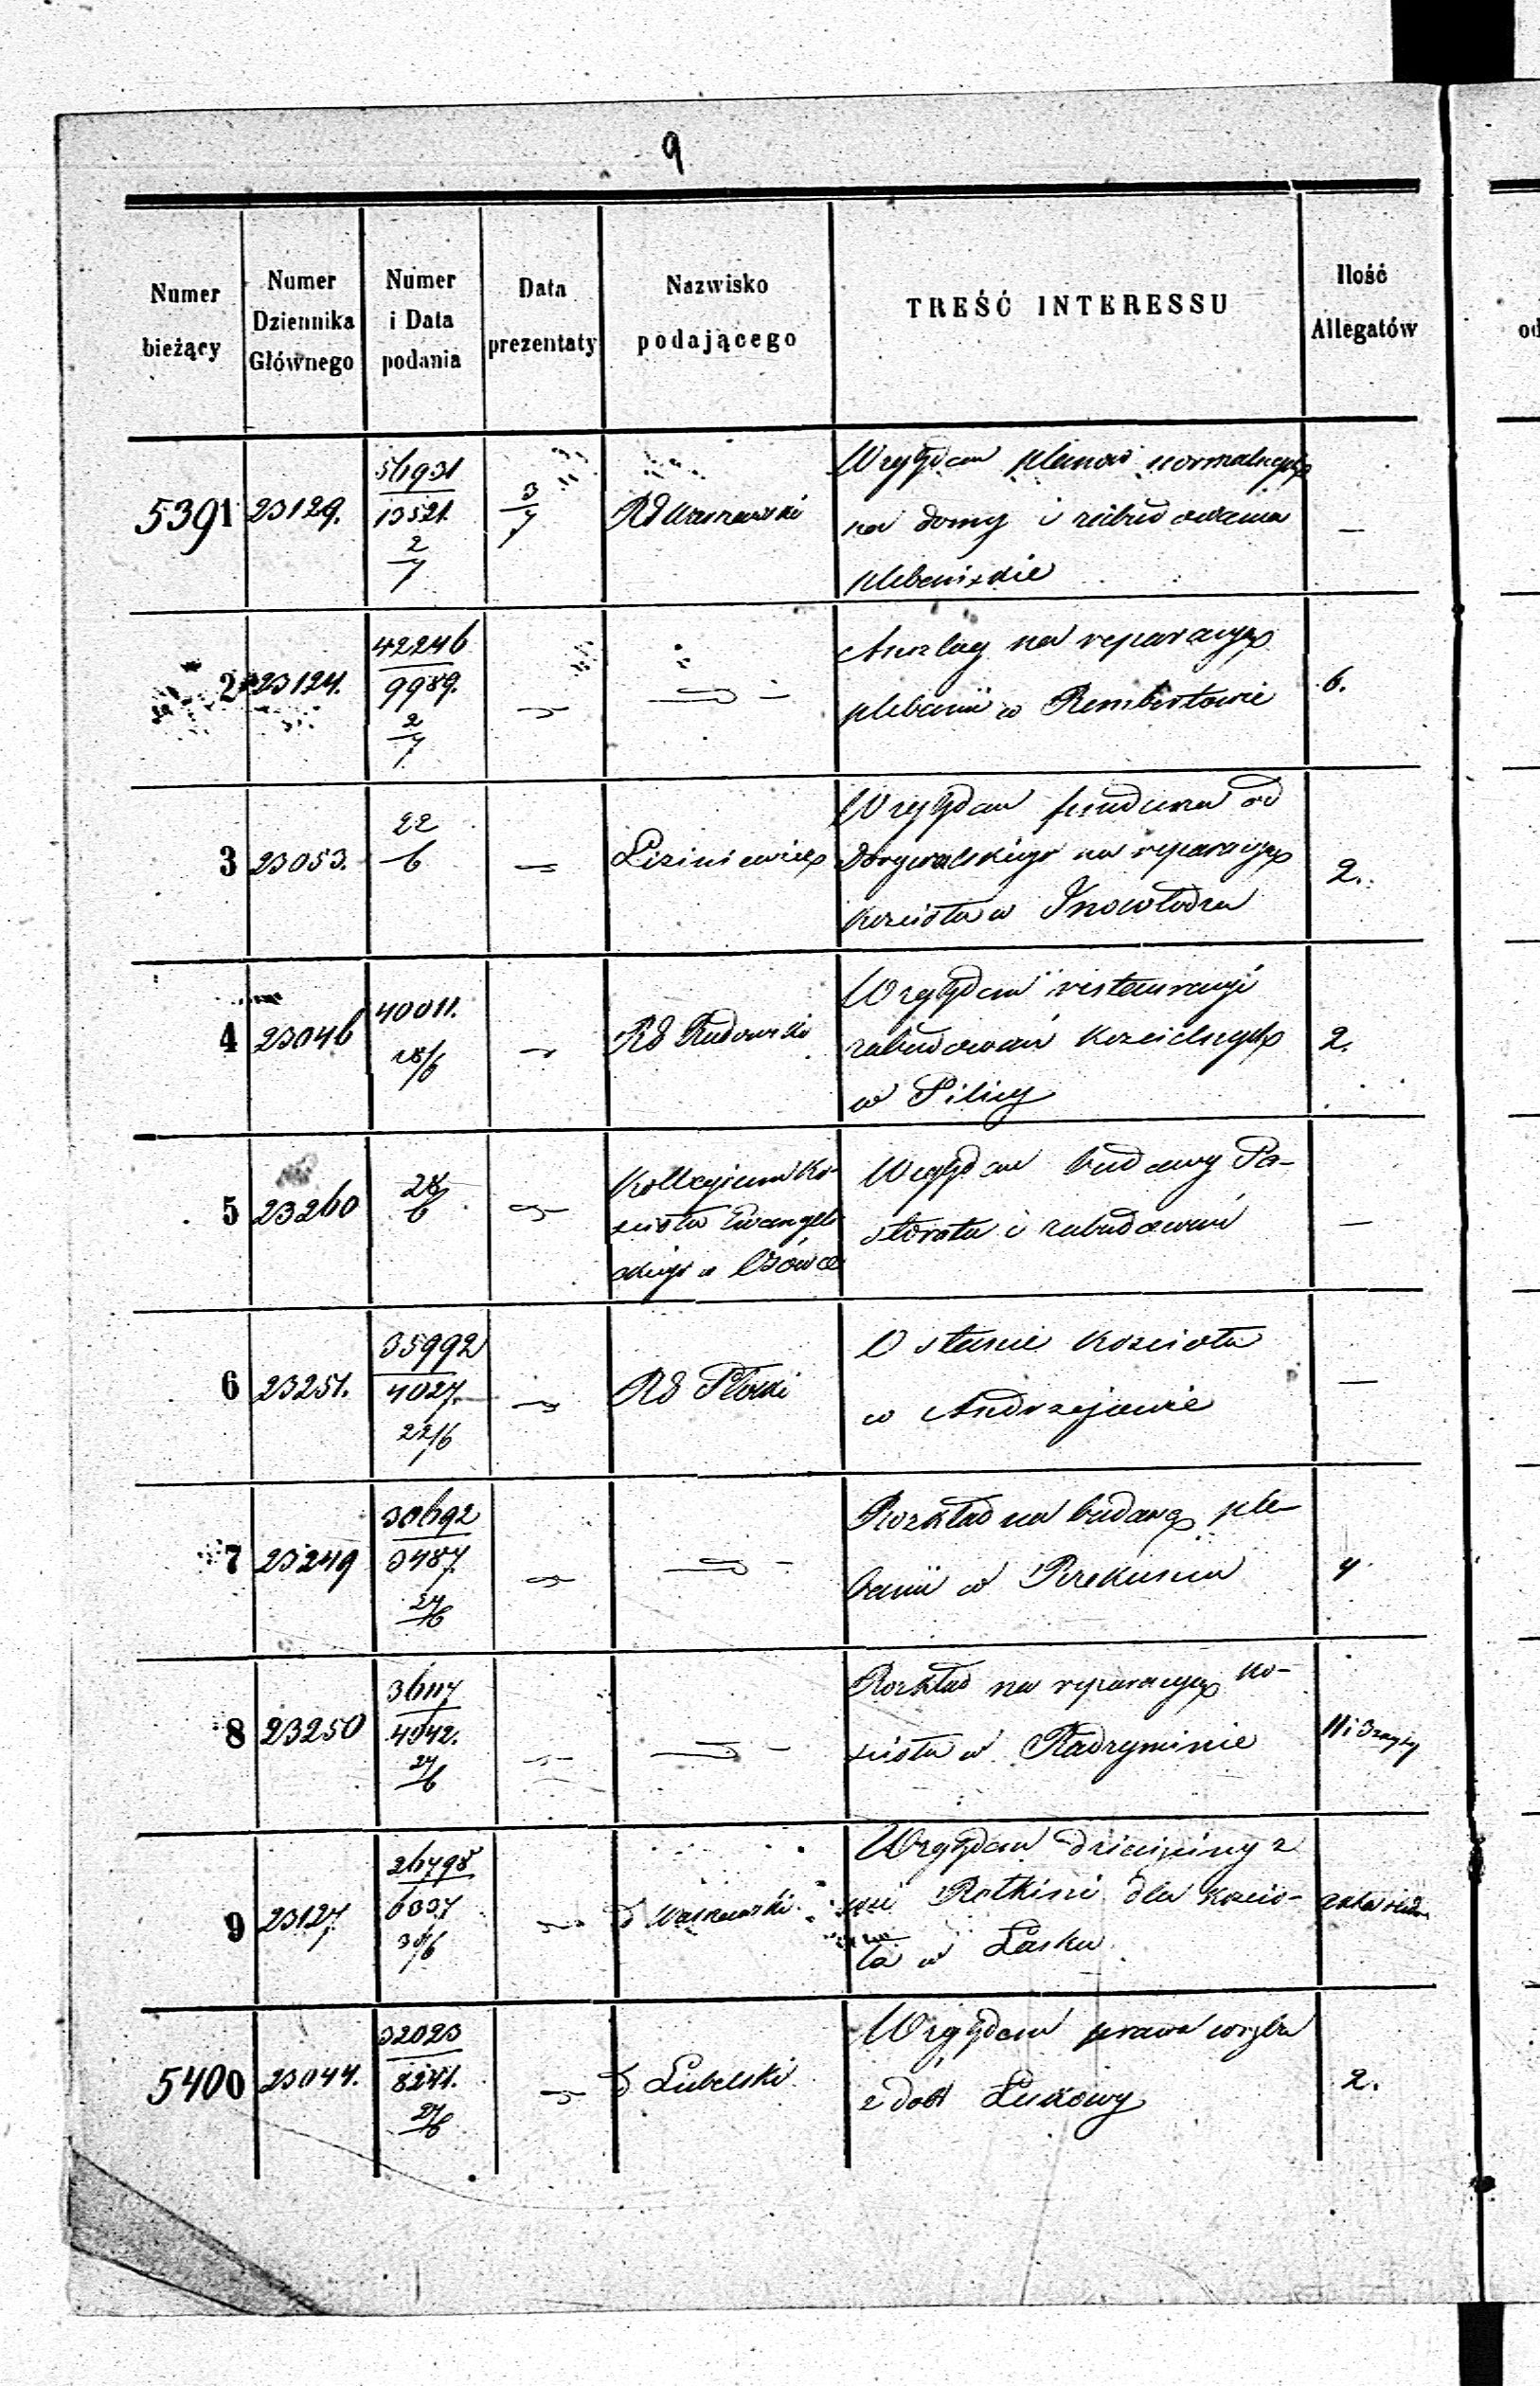 9
Numer bieżący
Numer Dziennika Głównego
Numer i Data podania
Data prezentaty
Nazwisko podającego
TREŚĆ INTERESSU
Ilość Allegatów
5391 23129. 56931 / 13521. 2/7 3/7 RG Warszawski
Względem planów normalnych
na domy i zabudowania
plebańskie
—
2 23124. 42246 / 9989. 2/7
Anszlag na reparacyę
plebanii w Rembertowie
6.
3 23053. 22/6
Względem funduszu od
na reparacyę
kościoła w Inowłodzu
2.
4 23046 40011. 28/6 RG Radomski
Względem restauracyi
zabudowań kościelnych
w Pilicy
2.
5 23260 28/6
Kollegium Ko-
ścioła Ewangeli-
ckiego w
Względem budowy Pa-
storatu i zabudowań
—
6 23251. 35992 / 4027. 22/6 RG Płocki
O stanie kościoła
w Andrzejewie
—
7 23249 30692 / 3487. 27/6
Rozkład na budowę ple-
banii w
4
8 23250 36117 / 4942. 27/6
Rozkład na reparacyę ko-
ścioła w Radzyminie
11 i 3 zeszyty
9 23127 26798 / 6337 30/6 Warszawski
Względem dziesięciny z
wsi Rotkini dla kościo-
ła w Łasku
5400 23044. 32023 / 8241. 27/6 Lubelski
Względem prawa wrębu
z dóbr Łukowy
2.